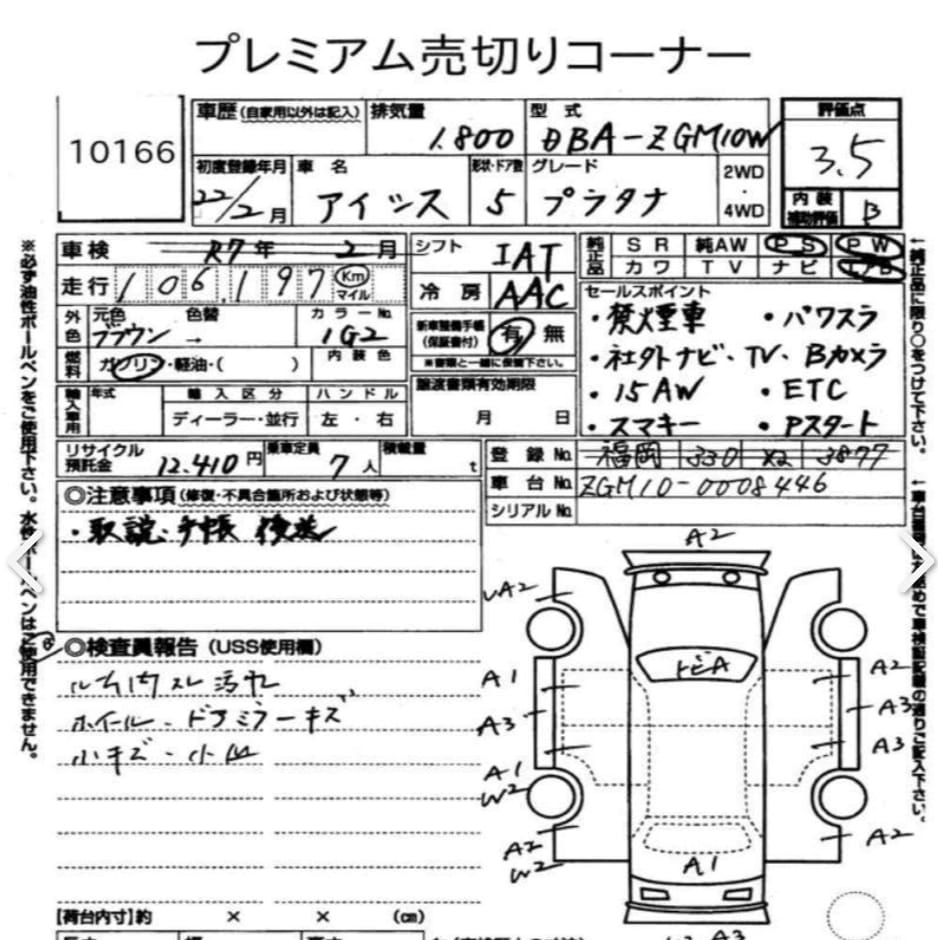 プレミアム売切りコーナー
10166
車歴(自家用以外は記入)
排気量
1.800
型式
DBA-ZGM10W
評価点
3.5
初度登録年月
22/2月
車名
アイシス
形状・ドア数
5
グレード
プラタナ
2WD
・
4WD
内装
補助評価
B
車検 R7年 2月
走行 106,197 Km
マイル
シフト IAT
冷房 AAC
純正品
SR 純AW PS PW
カワ TV ナビ エアB
外色
元色 色替
ブラウン →
カラーNo.
1G2
燃料
ガソリン・軽油・( )
内装色
新車整備手帳
(保証書付)
有 無
※書類と一緒に保管下さい。
セールスポイント
・禁煙車 ・パワスラ
・社外ナビ・TV・Bカメラ
・15AW ・ETC
・スマキー ・Pスタート
輸入車用
年式
輸入区分
ディーラー・並行
ハンドル
左・右
譲渡書類有効期限
月 日
リサイクル
預託金 12.410円
乗車定員
7人
積載量
t
登録No. 福岡 330 3877
車台No. ZGM10-0008446
シリアルNo.
◎注意事項(修復・不具合箇所および状態等)
・取説・手帳 後送
◎検査員報告(USS使用欄)
ルーム内スレ汚レ
ホイール・ドアミラーキズ
小キズ・小凹
A2
A2
A1
A3
A1
W2
A2
W2
トビA
A2
A3
A3
A2
A1
A3
【荷台内寸】約 × × (cm)
※必ず油性ボールペンをご使用下さい。水性ボールペンはご使用できません。
↑純正品に限り○をつけて下さい。